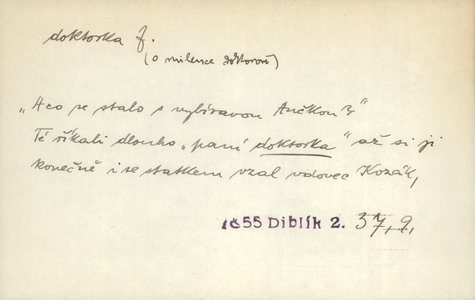 doktorka f.
(o milence doktorově)
„A co se stalo s vybíravou Ančkou?"
Té říkali dlouho „paní doktorka" až si ji
konečně i se statkem vzal vdovec Kozák,
1č55 Diblík 2. 37, 9,